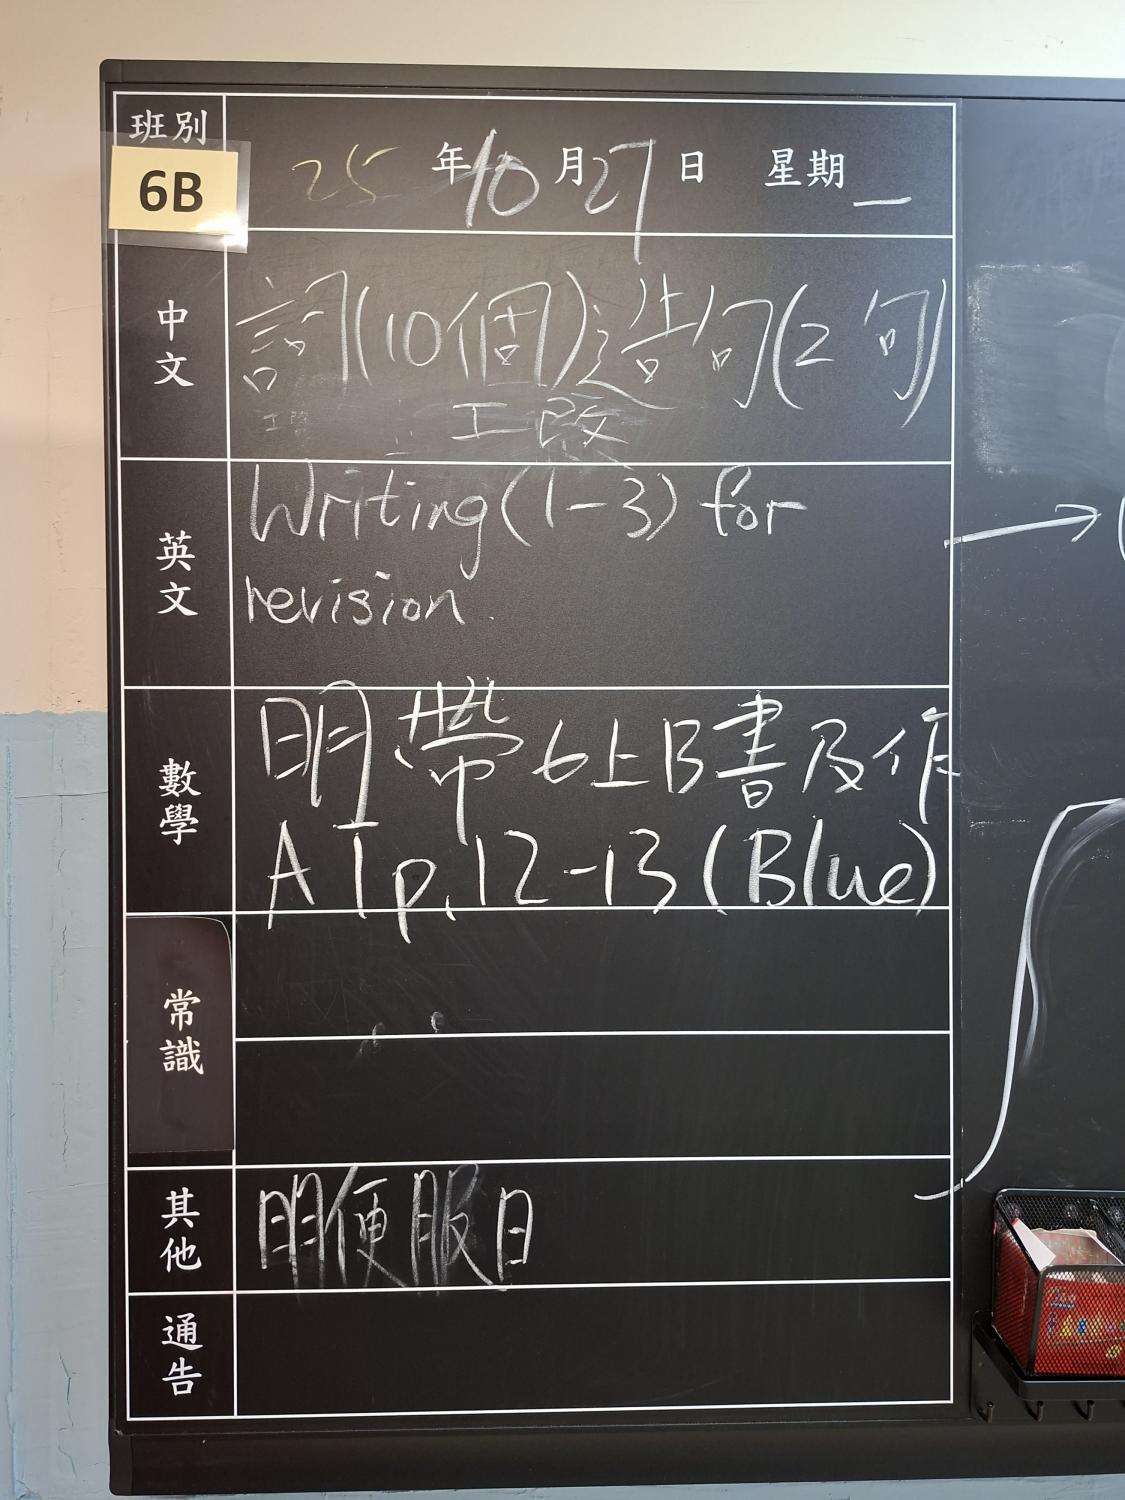 班別
6B
25年10月27日 星期一
中文
詞(10個)造句(2句)
工啟
英文
Writing (1-3) for
revision.
數學
明帶6上B書及作
A T p.12-13 (Blue)
常識
其他
明便服日
通告